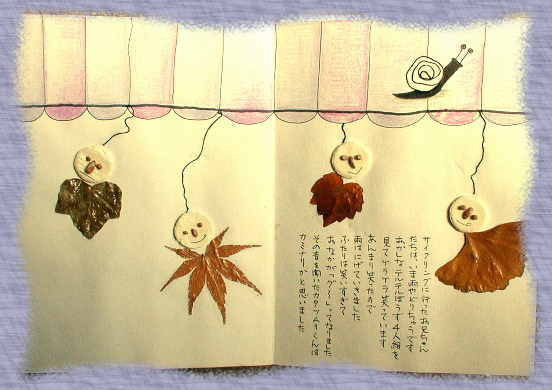 サイクリングに行ったお兄ちゃん
たちは、いま雨やどりちゅうです
おかしなテルテルぼうず4人組を
見てゲラゲラ笑っています
あんまり笑ったので
雨はにげていきました
ふたりは笑いすぎて
おなかが「グ〜」ってなりました
その音を聞いたカタツムリくんは
カミナリかと思いました